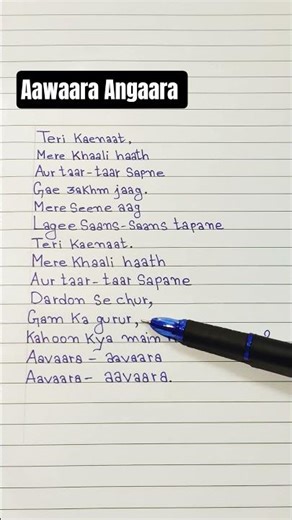 Aawaara Angaara
Teri Kaenaat,
Mere Khaali haath
Aur taar-taar Sapne
Gae zakhm jaag.
Mere Seene aag
Lagee Saans-Saans tapane
Teri Kaenaat.
Mere Khaali haath
Aur taar-taar Sapane
Dardon Se chur,
Gam Ka gurur,
Kahoon Kya main
Aavaara - aavaara
Aavaara - aavaara.